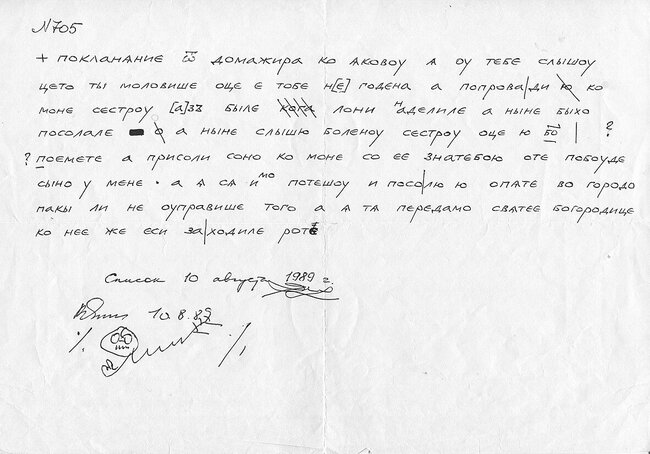 N705
+ покланание ѿ домажира ко аковоу а оу тебе слышоу
цето ты моловише оце е тобе н[е] годена а попрова|ди ю ко
моне сестроу [а]зъ быле кога лони наделиле а ныне быхо
посолале о а ныне слышю боленоу сестроу оце ю бо | ?
? поемете а присоли соно ко моне со ее знатебою оте побоуде
сыно у мене · а а са имо потешоу и посо|лю ю опате во городо
пакы ли не оуправише того а а та передамо святее богородице
ко нее же еси за|ходиле роте
Список 10 августа 1989 г.
10.8.89